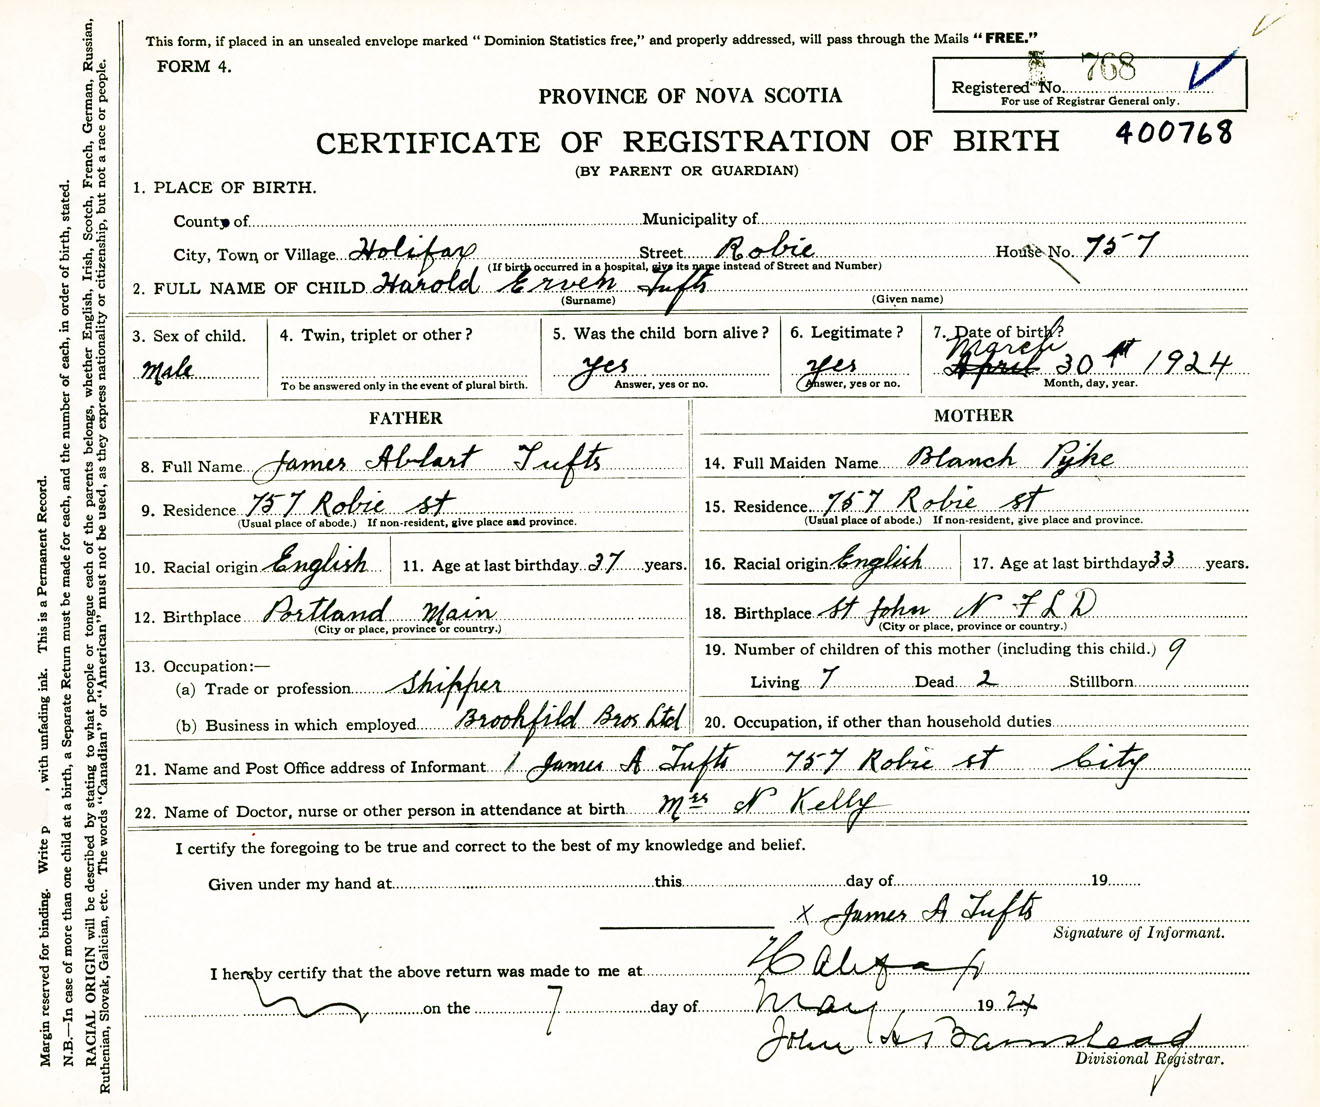 This form, if placed in an unsealed envelope marked " Dominion Statistics free," and properly addressed, will pass through the Mails "FREE."
FORM 4.
768
Registered No.
For use of Registrar General only.
PROVINCE OF NOVA SCOTIA
400768
CERTIFICATE OF REGISTRATION OF BIRTH
(BY PARENT OR GUARDIAN)
1. PLACE OF BIRTH.
County of Municipality of
City, Town or Village Holifax Street Robie House No. 757
(If birth occurred in a hospital, give its name instead of Street and Number)
2. FULL NAME OF CHILD Harold Erven Tufts
(Surname) (Given name)
3. Sex of child. 4. Twin, triplet or other? 5. Was the child born alive? 6. Legitimate? 7. Date of birth?
March
Male yes yes April 30 1st 1924
To be answered only in the event of plural birth. Answer, yes or no. Answer, yes or no. Month, day, year.
FATHER MOTHER
8. Full Name James Ablart Tufts
9. Residence 757 Robie st
(Usual place of abode.) If non-resident, give place and province.
10. Racial origin English 11. Age at last birthday 37 years.
12. Birthplace Portland Main
(City or place, province or country.)
13. Occupation:—
(a) Trade or profession Shipper
(b) Business in which employed Brookfild Bros Ltd
14. Full Maiden Name Blanch Pyke
15. Residence 757 Robie st
(Usual place of abode.) If non-resident, give place and province.
16. Racial origin English 17. Age at last birthday 33 years.
18. Birthplace St John N F L D
(City or place, province or country.)
19. Number of children of this mother (including this child.) 9
Living 7 Dead 2 Stillborn
20. Occupation, if other than household duties
21. Name and Post Office address of Informant James A Tufts 757 Robie st City
22. Name of Doctor, nurse or other person in attendance at birth Mrs N Kelly
I certify the foregoing to be true and correct to the best of my knowledge and belief.
Given under my hand at this day of 19
x James A Tufts
Signature of Informant.
I hereby certify that the above return was made to me at Halifax
on the 7 day of May 1924
John H Barnstead
Divisional Registrar.
Margin reserved for binding. Write p , with unfading ink. This is a Permanent Record.
N.B.—In case of more than one child at a birth, a Separate Return must be made for each, and the number of each, in order of birth, stated.
RACIAL ORIGIN will be described by stating to what people or tongue each of the parents belongs, whether English, Irish, Scotch, French, German, Russian,
Ruthenian, Slovak, Galician, etc. The words "Canadian" or "American" must not be used, as they express nationality or citizenship, but not a race or people.